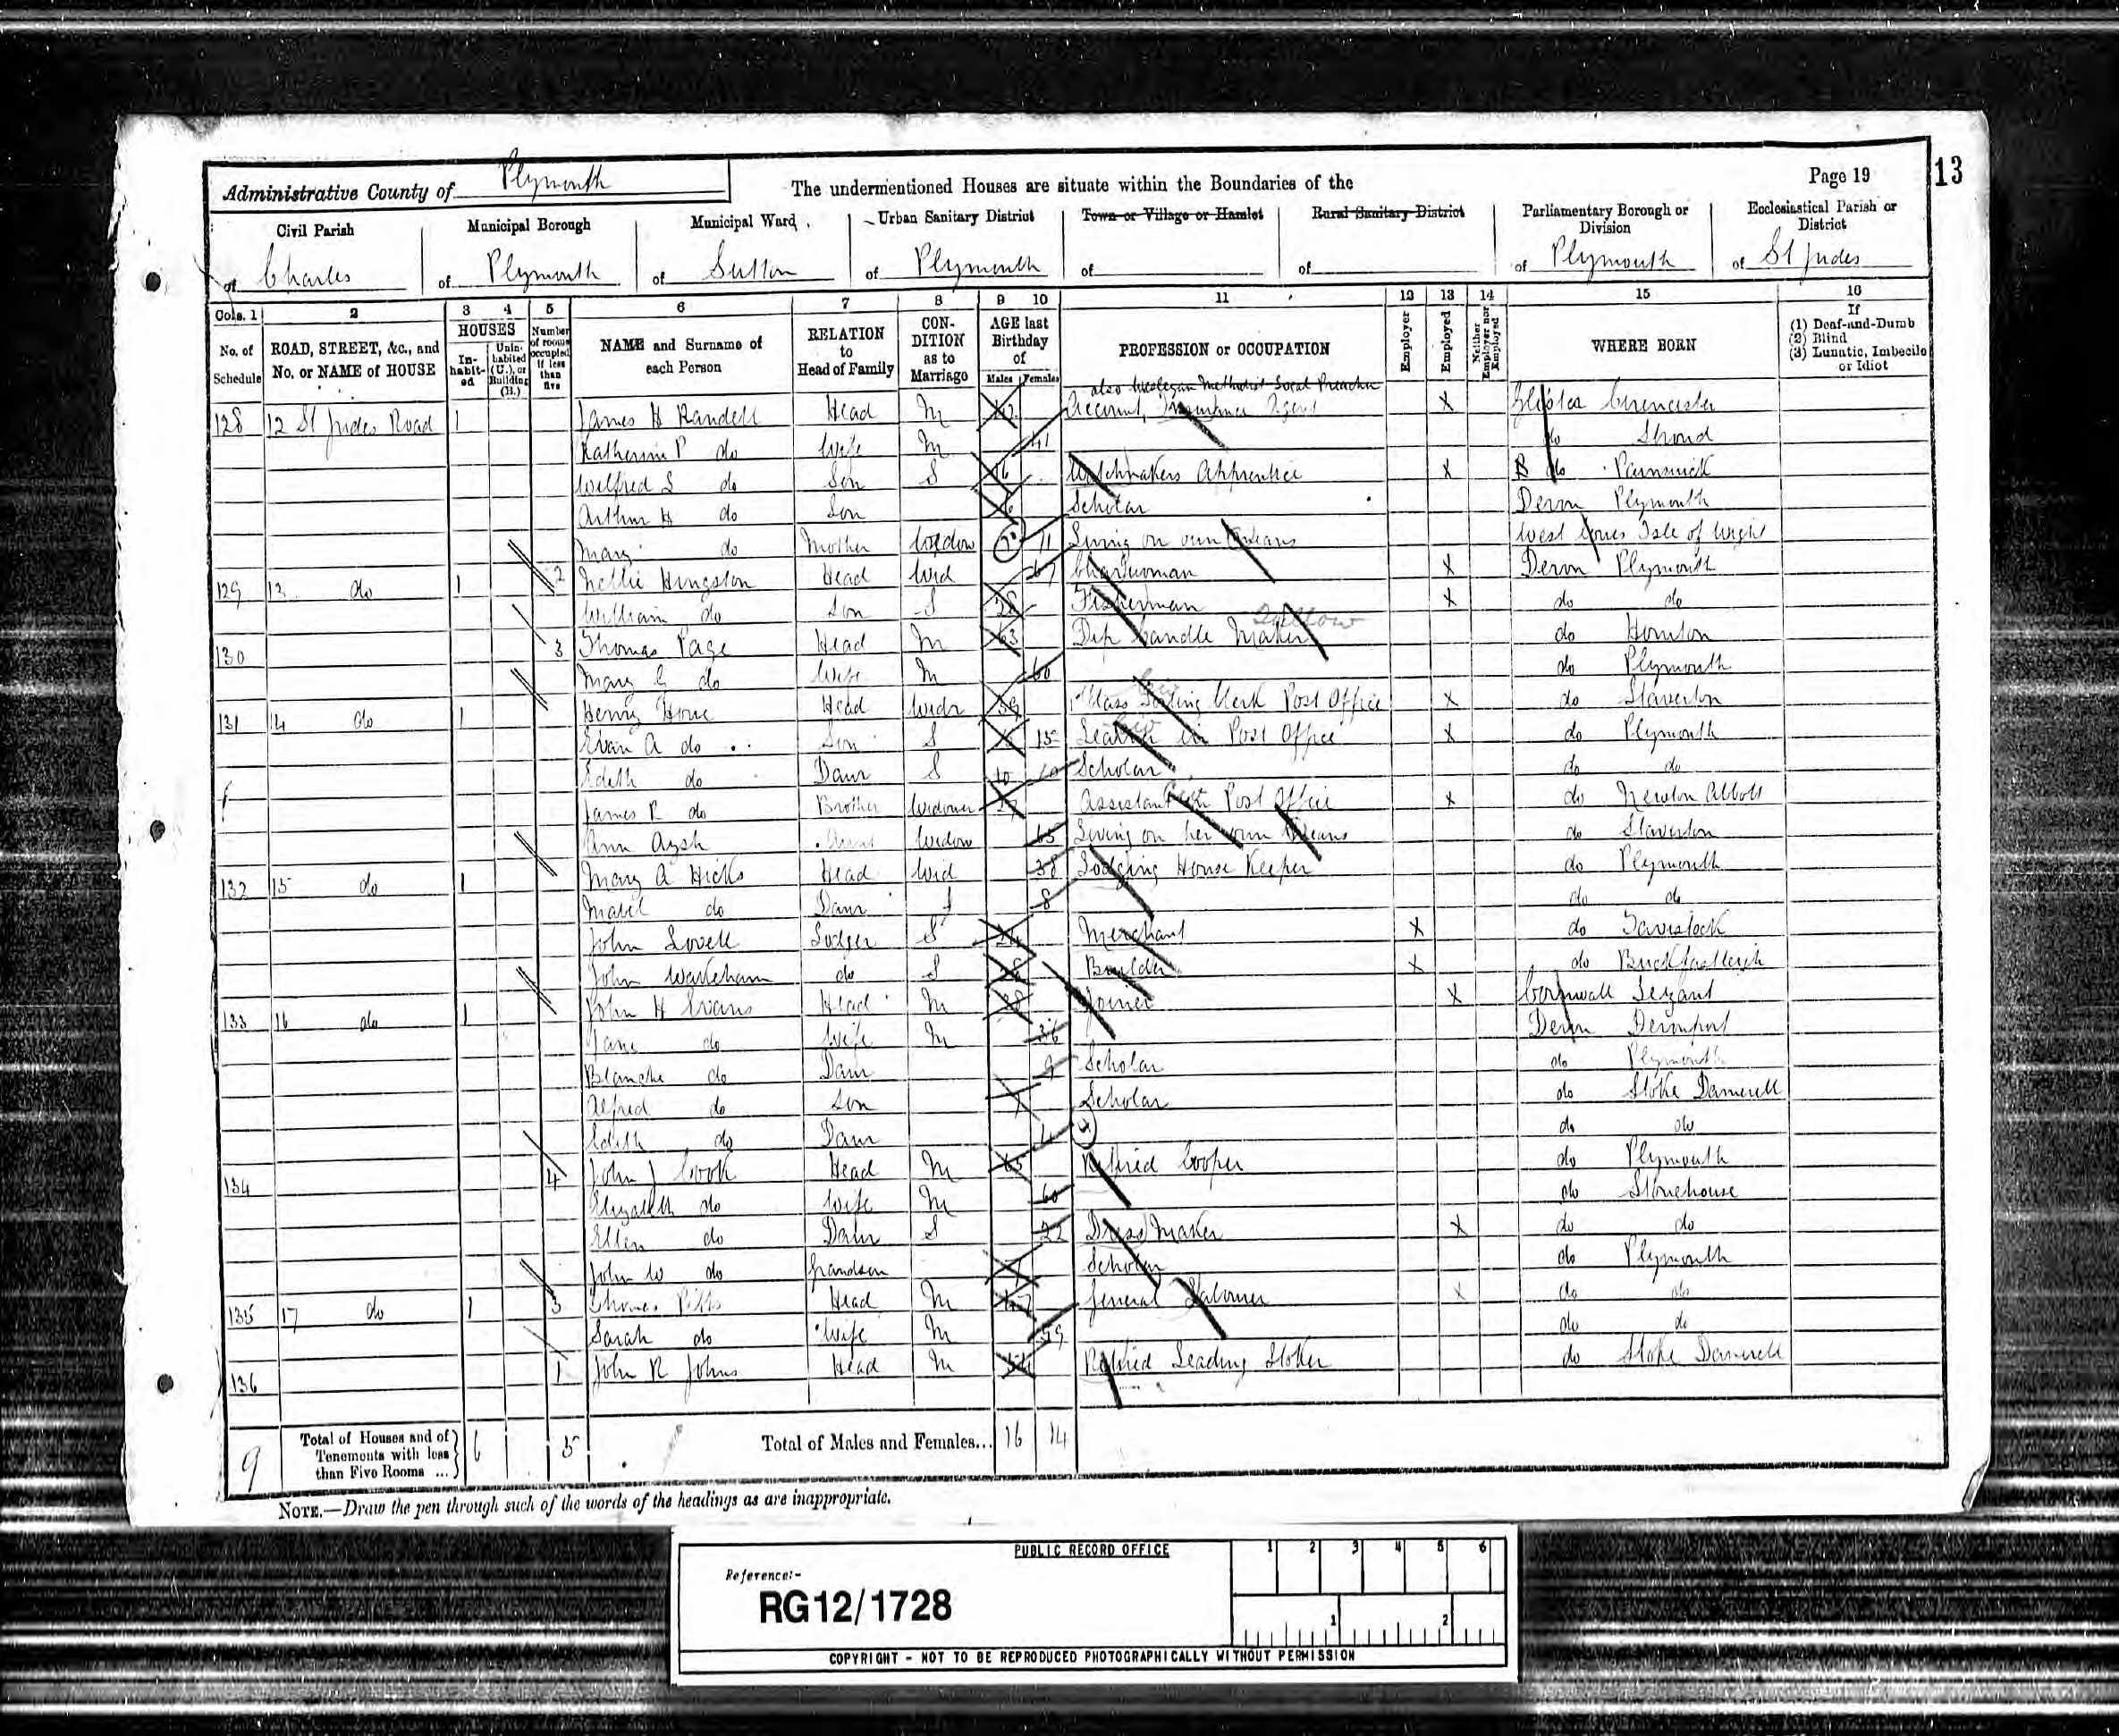 13
Page 19
Administrative County of Plymouth
The undermentioned Houses are situate within the Boundaries of the
Civil Parish of Charles
Municipal Borough of Plymouth
Municipal Ward of Sutton
Urban Sanitary District of Plymouth
Town or Village or Hamlet of
Rural Sanitary District of
Parliamentary Borough or Division of Plymouth
Ecclesiastical Parish or District of St Judes
Cols. 1 2 3 4 5 6 7 8 9 10 11 12 13 14 15 16
No. of Schedule
ROAD, STREET, &c., and No. or NAME of HOUSE
HOUSES
Inhabited
Uninhabited (U.), or Building (B.)
Number of rooms occupied if less than five
NAME and Surname of each Person
RELATION to Head of Family
CONDITION as to Marriage
AGE last Birthday of
Males Females
PROFESSION or OCCUPATION
Employer
Employed
Neither Employer nor Employed
WHERE BORN
If (1) Deaf-and-Dumb (2) Blind (3) Lunatic, Imbecile or Idiot
also Wesleyan Methodist Local Preacher
128 12 St Judes Road 1 James H Randell Head M Account, Insurance Agent X Cirencester
Katherine P do Wife M 41 do Stroud
Wilfred S do Son S 16 Watchmakers Apprentice X do
Arthur H do Son 6 Scholar Devon Plymouth
Mary do Mother Widow 71 Living on own Means West Cowes Isle of Wight
129 13 do 1 2 Nellie Hingston Head Wid 67 Charwoman X Devon Plymouth
William do Son S 28 Fisherman X do do
Tallow
130 3 Thomas Page Head M 63 Dip Candle Maker do Honiton
Mary G do Wife M 60 do Plymouth
131 14 do 1 Henry Hone Head Widr 39 Class Sorting Clerk Post Office X do Staverton
Evan A do Son S 15 Learner in Post Office X do Plymouth
Edith do Daur S 10 Scholar do do
James R do Brother Widower Assistant Post Office X do Newton Abbott
Ann Aysh Aunt Widow 65 Living on her own Means do Staverton
132 15 do 1 Mary A Hicks Head Wid 38 Lodging House Keeper do Plymouth
Mabel do Daur 8 do do
John Lovell Lodger S 24 Merchant X do Tavistock
John Wakeham do S Builder X do Buckfastleigh
133 16 do 1 John H Evans Head M 38 Joiner X Cornwall Lezant
Jane do Wife M 36 Devon Devonport
Blanche do Daur 9 Scholar do Plymouth
Alfred do Son 7 Scholar do Stoke Damerell
Edith do Daur do do
134 4 John J Cook Head M 65 Retired Cooper do Plymouth
Elizabeth do Wife M 60 do Stonehouse
Ellen do Daur S 22 Dress Maker X do do
John W do Grandson Scholar do Plymouth
135 17 do 1 3 Thomas Pitts Head M General Labourer X do do
Sarah do Wife M 59 do do
136 1 John R Johns Head M 54 Retired Leading Stoker do Stoke Damerell
9 Total of Houses and of Tenements with less than Five Rooms ... 6 5 Total of Males and Females... 16 14
NOTE.—Draw the pen through such of the words of the headings as are inappropriate.
PUBLIC RECORD OFFICE
1 2 3 4 5 6
Reference:-
RG12/1728
1 2
COPYRIGHT - NOT TO BE REPRODUCED PHOTOGRAPHICALLY WITHOUT PERMISSION